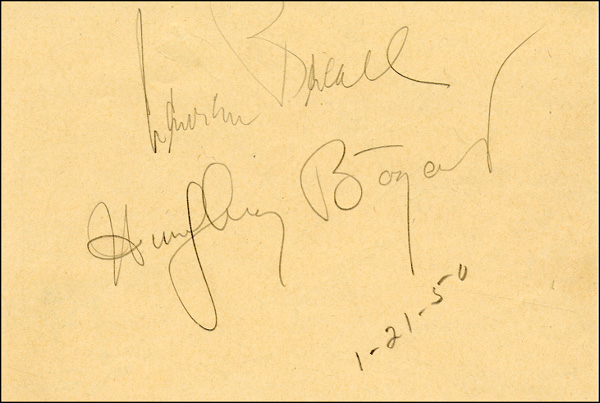 Lauren Bacall
Humphrey Bogart
1-21-50